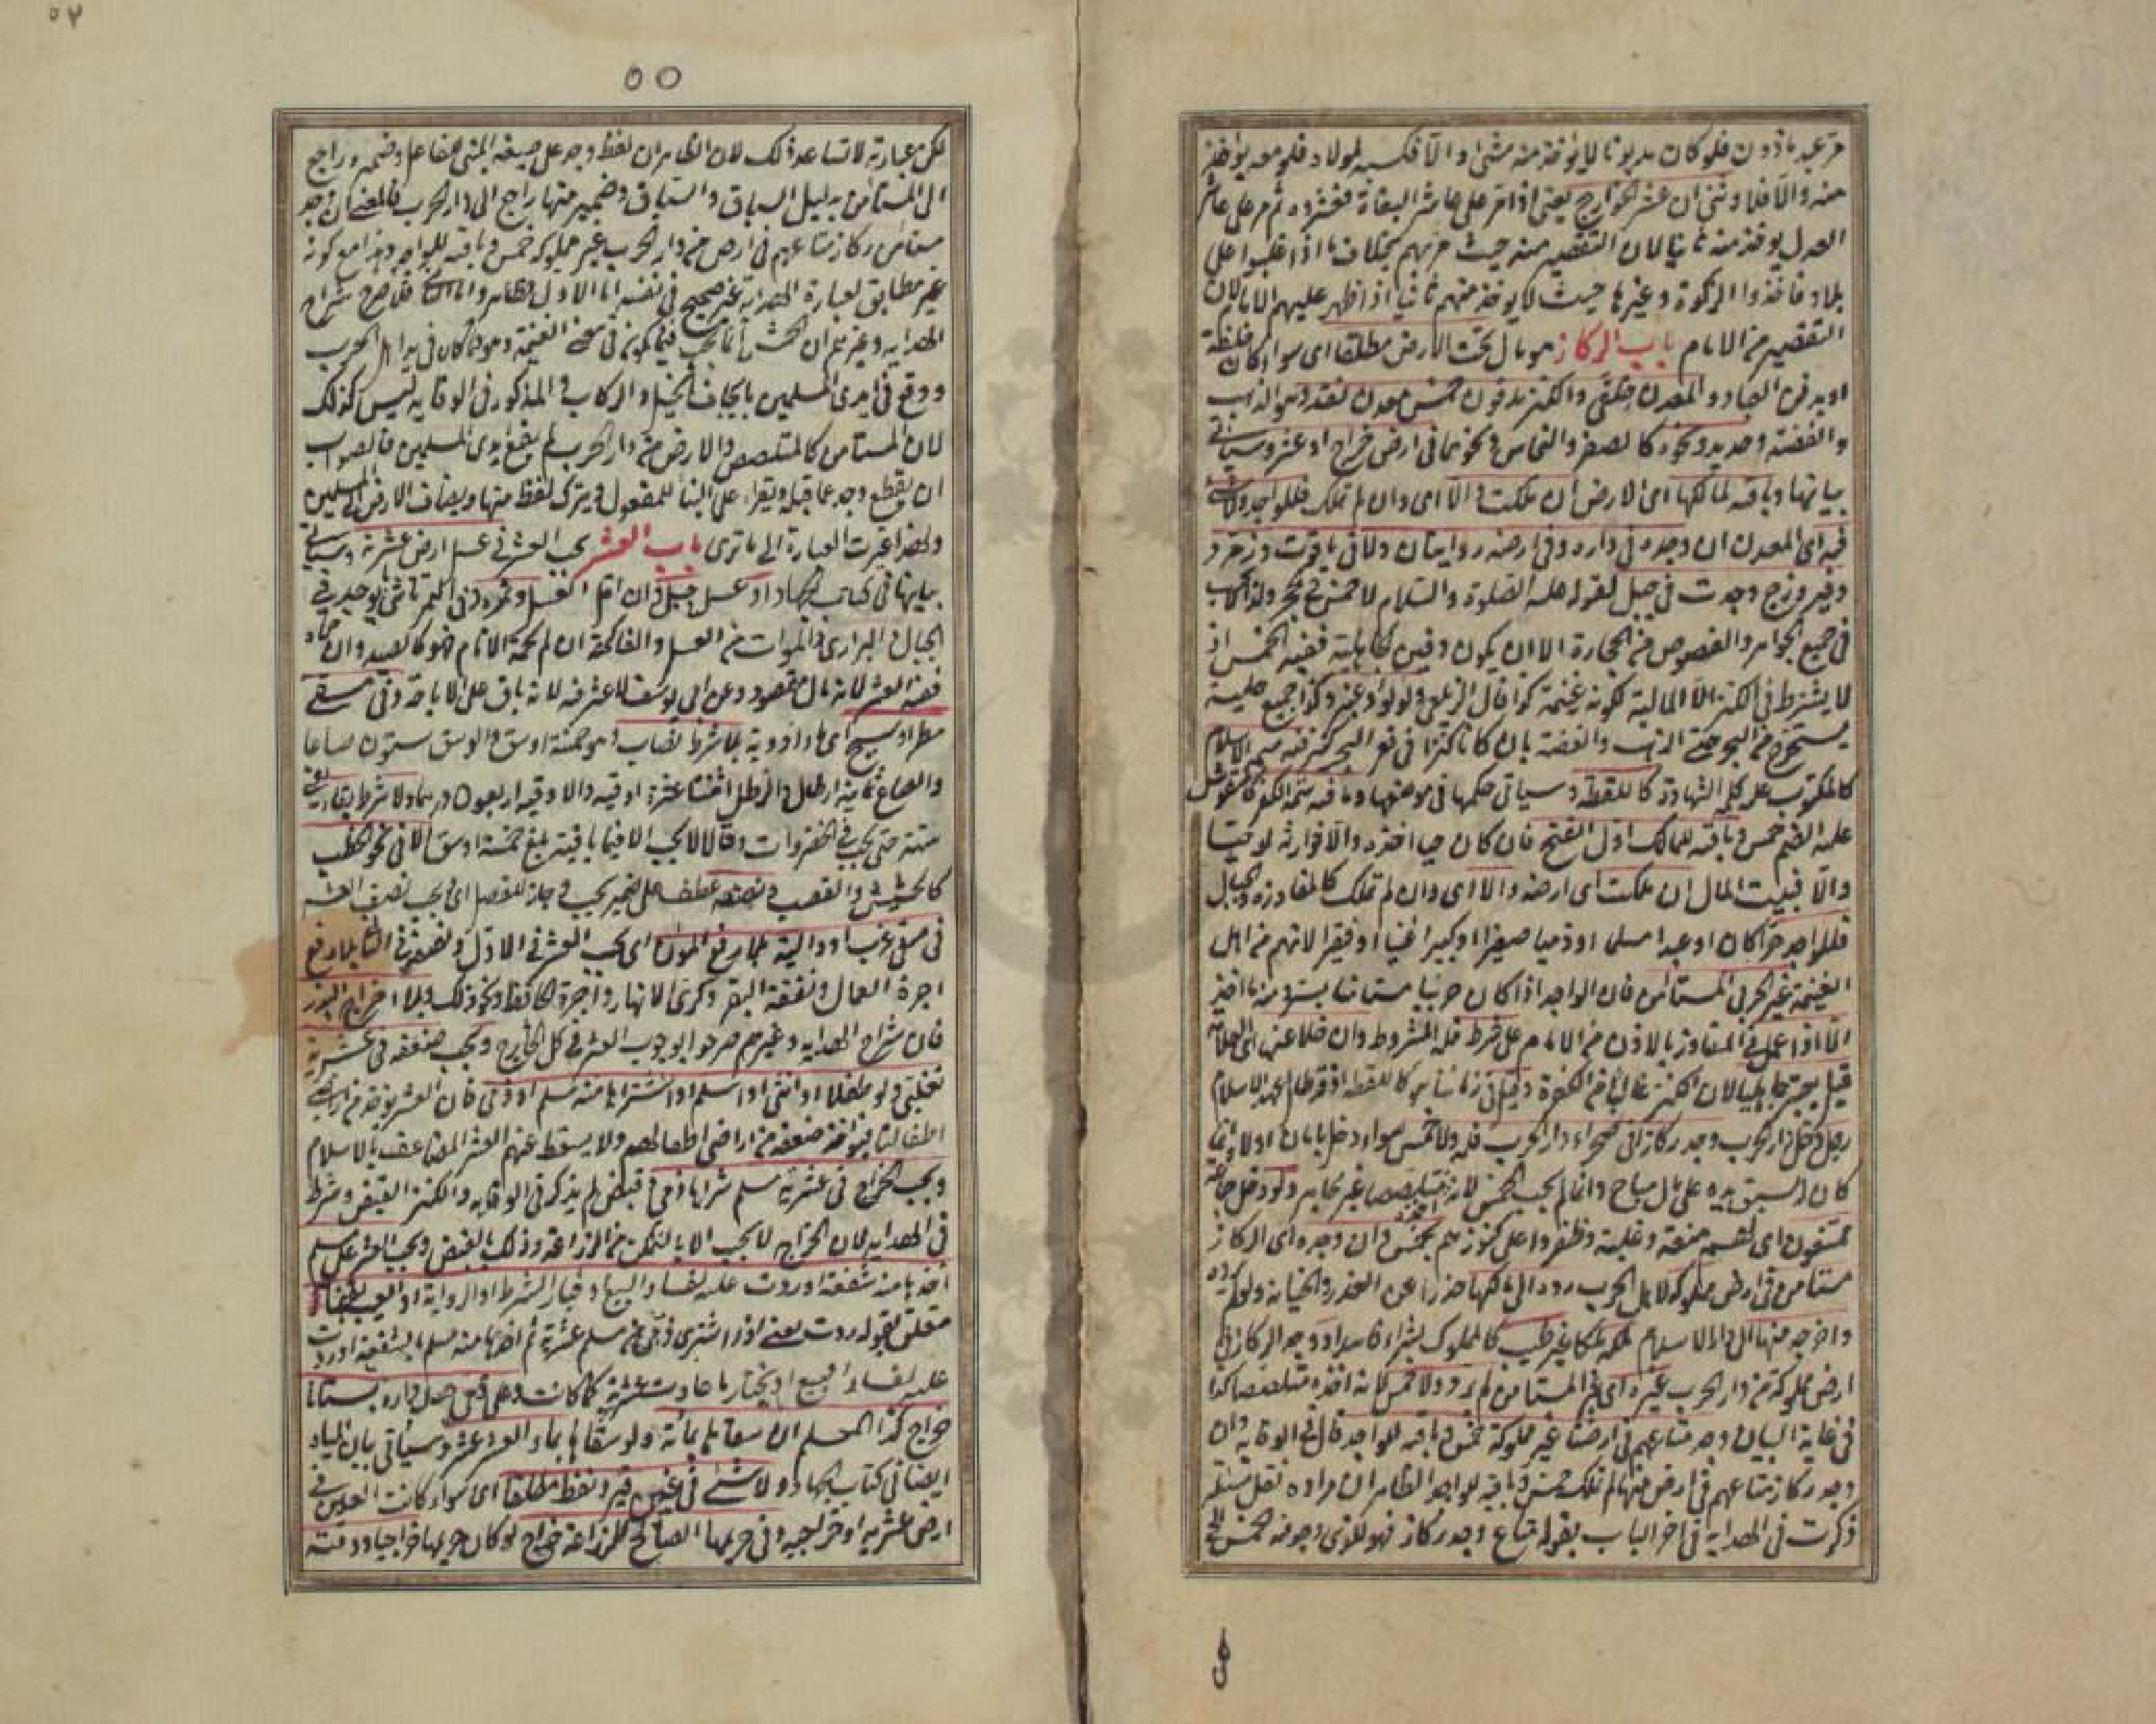 مر عبد مأذون فلو كان مديونا لا يؤخذ منه شئ والا فكسبه لمولاه فلو معه يؤخذ
منه والا فلا وثنى ان عشر الخوارج يعنى اذا مر على عاشر البغاة فعشروه ثم مر على عاشر
العدل يؤخذ منه ثانيا لان التقصير منه حيث مر بهم بخلاف ما اذا غلبوا على
بلاد فاخذوا الزكوة وغيرها حيث لا يؤخذ منهم ثانيا اذا ظهر عليهم الامام لان
التقصير من الامام باب الركاز هو مال تحت الارض مطلقا اى سواء كان خلقة
او بدفن العباد والمعدن خلقى والكنز مدفون خمس معدن نقد وهو الذهب
والفضة وحديد ونحوه كالصفر والنحاس ونحوهما فى ارض خراج او عشر وسياتى
بيانها وباقيه لمالكها اى الارض ان ملكت والا اى وان لم تملك فللواجد ولا شئ
فيه اى المعدن ان وجده فى داره وفى ارضه روايتان ولا فى ياقوت وزمرد
وفيروزج وجدت فى جبل لقوله عليه الصلوة والسلام لا خمس فى حجر ولذا لا يجب
فى جميع الجواهر والفصوص من الحجارة الا ان يكون دفين الجاهلية ففيه الخمس اذ
لا يشترط فى الكنز الا المالية لكونه غنيمة كذا قال الزيلعى ولؤلؤ وعنبر وكذا جميع حلية
يستخرج من البحر حتى الذهب والفضة بان كانا كنزا فى قعر البحر كنز فيه سمة الاسلام
كالمكتوب عليه كلمة الشهادة كاللقطة وسياتى حكمها فى موضعها وما فيه سمة الكفر كالمنقوش
عليه الصنم خمس وباقيه للمالك اول الفتح فان كان حيا اخذه والا فوارثه لو حيا
والا فبيت المال ان ملكت اى ارضه والا اى وان لم تملك كالمفازة والجبال
فللواجد حرا كان او عبدا مسلما او ذميا صغيرا او كبيرا غنيا او فقيرا لانهم من اهل
الغنيمة غير الحربى المستأمن فان الواجد اذا كان حربيا مستأمنا يسترد منه ما اخذ
الا اذا عمل فى المفاوز بالاذن من الامام على شرط فله المشروط وان خلا عنها اى العلامة
قيل يعتبر جاهليا لان الكنز غالبا من الكفرة وقيل فى زماننا هو كاللقطة اذ قد طال عهد الاسلام
رجل دخل دار الحرب وجد ركازا فى صحراء دار الحرب فله ولا خمس سواء دخل بامان او لا وانما
كان له لسبق يده على مال مباح وانما لم يجب الخمس لانه اخذه متلصصا غير مجاهر ولو دخل جماعة
ممتنعون اى لهم منعة وغلبة وظفروا على كنوزهم يخمس وان وجده اى الركاز
مستأمن فى ارض مملوكة لاهل الحرب رده الى مالكها حذرا عن الغدر والخيانة ولو لم يرده
واخرجه منها الى دار الاسلام ملكه ملكا غير طيب كالمملوك بشراء فاسد او وجد الركاز فى
ارض مملوكة من دار الحرب غيره اى غير المستأمن لم يرد ولا خمس لانه اخذه متلصصا كذا
فى غاية البيان وجد متاعهم فى ارضنا غير مملوكة خمس وباقيه للواجد قال فى الوقاية وان
وجد ركاز متاعهم فى ارض منها لم تملك خمس وباقيه للواجد الظاهر ان مراده نقل مسئلة
ذكرت فى الهداية فى اخر الباب بقوله متاع وجد ركازا فهو للذى وجده وفيه الخمس الخ
٥٥
لكن عبارته لا تساعد ذلك لان الظاهر ان لفظ وجد على صيغة المبنى للفاعل وضميره راجع
الى المستأمن بدليل السباق والسياق وضمير منها راجع الى دار الحرب فالمعنى ان وجد
مستأمن ركاز متاعهم فى ارض من دار الحرب غير مملوكة خمس وباقيه للواجد وهذا مع كونه
غير مطابق لعبارة الهداية غير صحيح فى نفسه اما الاول فظاهر واما الثانى فلما صرح شراح
الهداية وغيرهم ان الخمس انما يجب فيما يكون فى معنى الغنيمة وهو ما كان فى يد اهل الحرب
ووقع فى ايدى المسلمين بايجاف الخيل والركاب والمذكور فى الوقاية ليس كذلك
لان المستأمن كالمتلصص والارض من دار الحرب لم يقع بايدى المسلمين فالصواب
ان يقطع وجد عما قبله ويقراء على البناء للمفعول ويترك لفظ منها ويضاف الارض الى المسلمين
ولهذا غيرت العبارة الى ما ترى باب العشر يجب العشر فى عسل ارض عشرية وسياتى
بيانها فى كتاب الجهاد او عسل جبل وان قل العسل وثمره فى التمرتاشى ما يوجد فى
الجبال والبرارى والموات من العسل والفاكهة ان لم يحمه الامام فهو كالصيد وان حماه
ففيه العشر لانه مال مقصود وعن ابى يوسف لا عشر فيه لانه باق على الاباحة وفى مسقى
مطر او سيح اى ماء اودية بلا شرط نصاب وهو خمسة اوسق والوسق ستون صاعا
والصاع ثمانية ارطال والرطل اثنتا عشرة اوقية والاوقية اربعون درهما ولا شرط بقاء يعنى
سنة حتى يجب فى الخضروات وقالا لا يجب الا فيما باقية تبلغ خمسة اوسق الا فى نحو الحطب
كالحشيش والقصب ونصفه عطف على ضمير يجب وجاز للفصل اى يجب نصف العشر
فى مسقى غرب او دالية بلا رفع المؤن اى يجب العشر فى الاول ونصفه فى الثانى بلا رفع
اجرة العمال ونفقة البقر وكرى الانهار واجرة الحافظ ونحو ذلك وبلا اخراج البذر
فان شراح الهداية وغيرهم صرحوا بوجوب العشر فى كل الخارج ويجب ضعفه فى عشرية
تغلبى ولو طفلا او انثى او اسلم او اشتراها منه مسلم او ذمى فان العشر يؤخذ من اراضى
اطفالنا فيؤخذ ضعفه من اراضى اطفالهم ولا يسقط عنهم العشر المضاعف بالاسلام
ويجب الخراج فى عشرية مسلم شراها ذمى وقبض لم يذكر فى الوقاية والكنز القبض وشرط
فى الهداية لان الخراج لا يجب الا بالتمكن من الزراعة وذلك بالقبض ويجب العشر على مسلم
اخذها منه شفعة او ردت عليه لفساد البيع او خيار الشرط او الرؤية او العيب بقضاء
متعلق بقوله ردت يعنى اذا اشترى ذمى من مسلم عشرية ثم اخذها منه مسلم بالشفعة او ردت
عليه لفساد البيع او بخيار ما عادت عشرية كما كانت وعلى ذمى جعل داره بستانا
خراج كذا المسلم ان سقاها بمائه ولو سقاها بماء العشر عشر وسيأتى بيان المياه
ايضا فى كتاب الجهاد ولا شئ فى عين قير ونفط مطلقا اى سواء كانت العين فى
ارض عشرية او خراجية وفى حريمها الصالح للزراعة خراج لو كان حريمها خراجيا ودمته